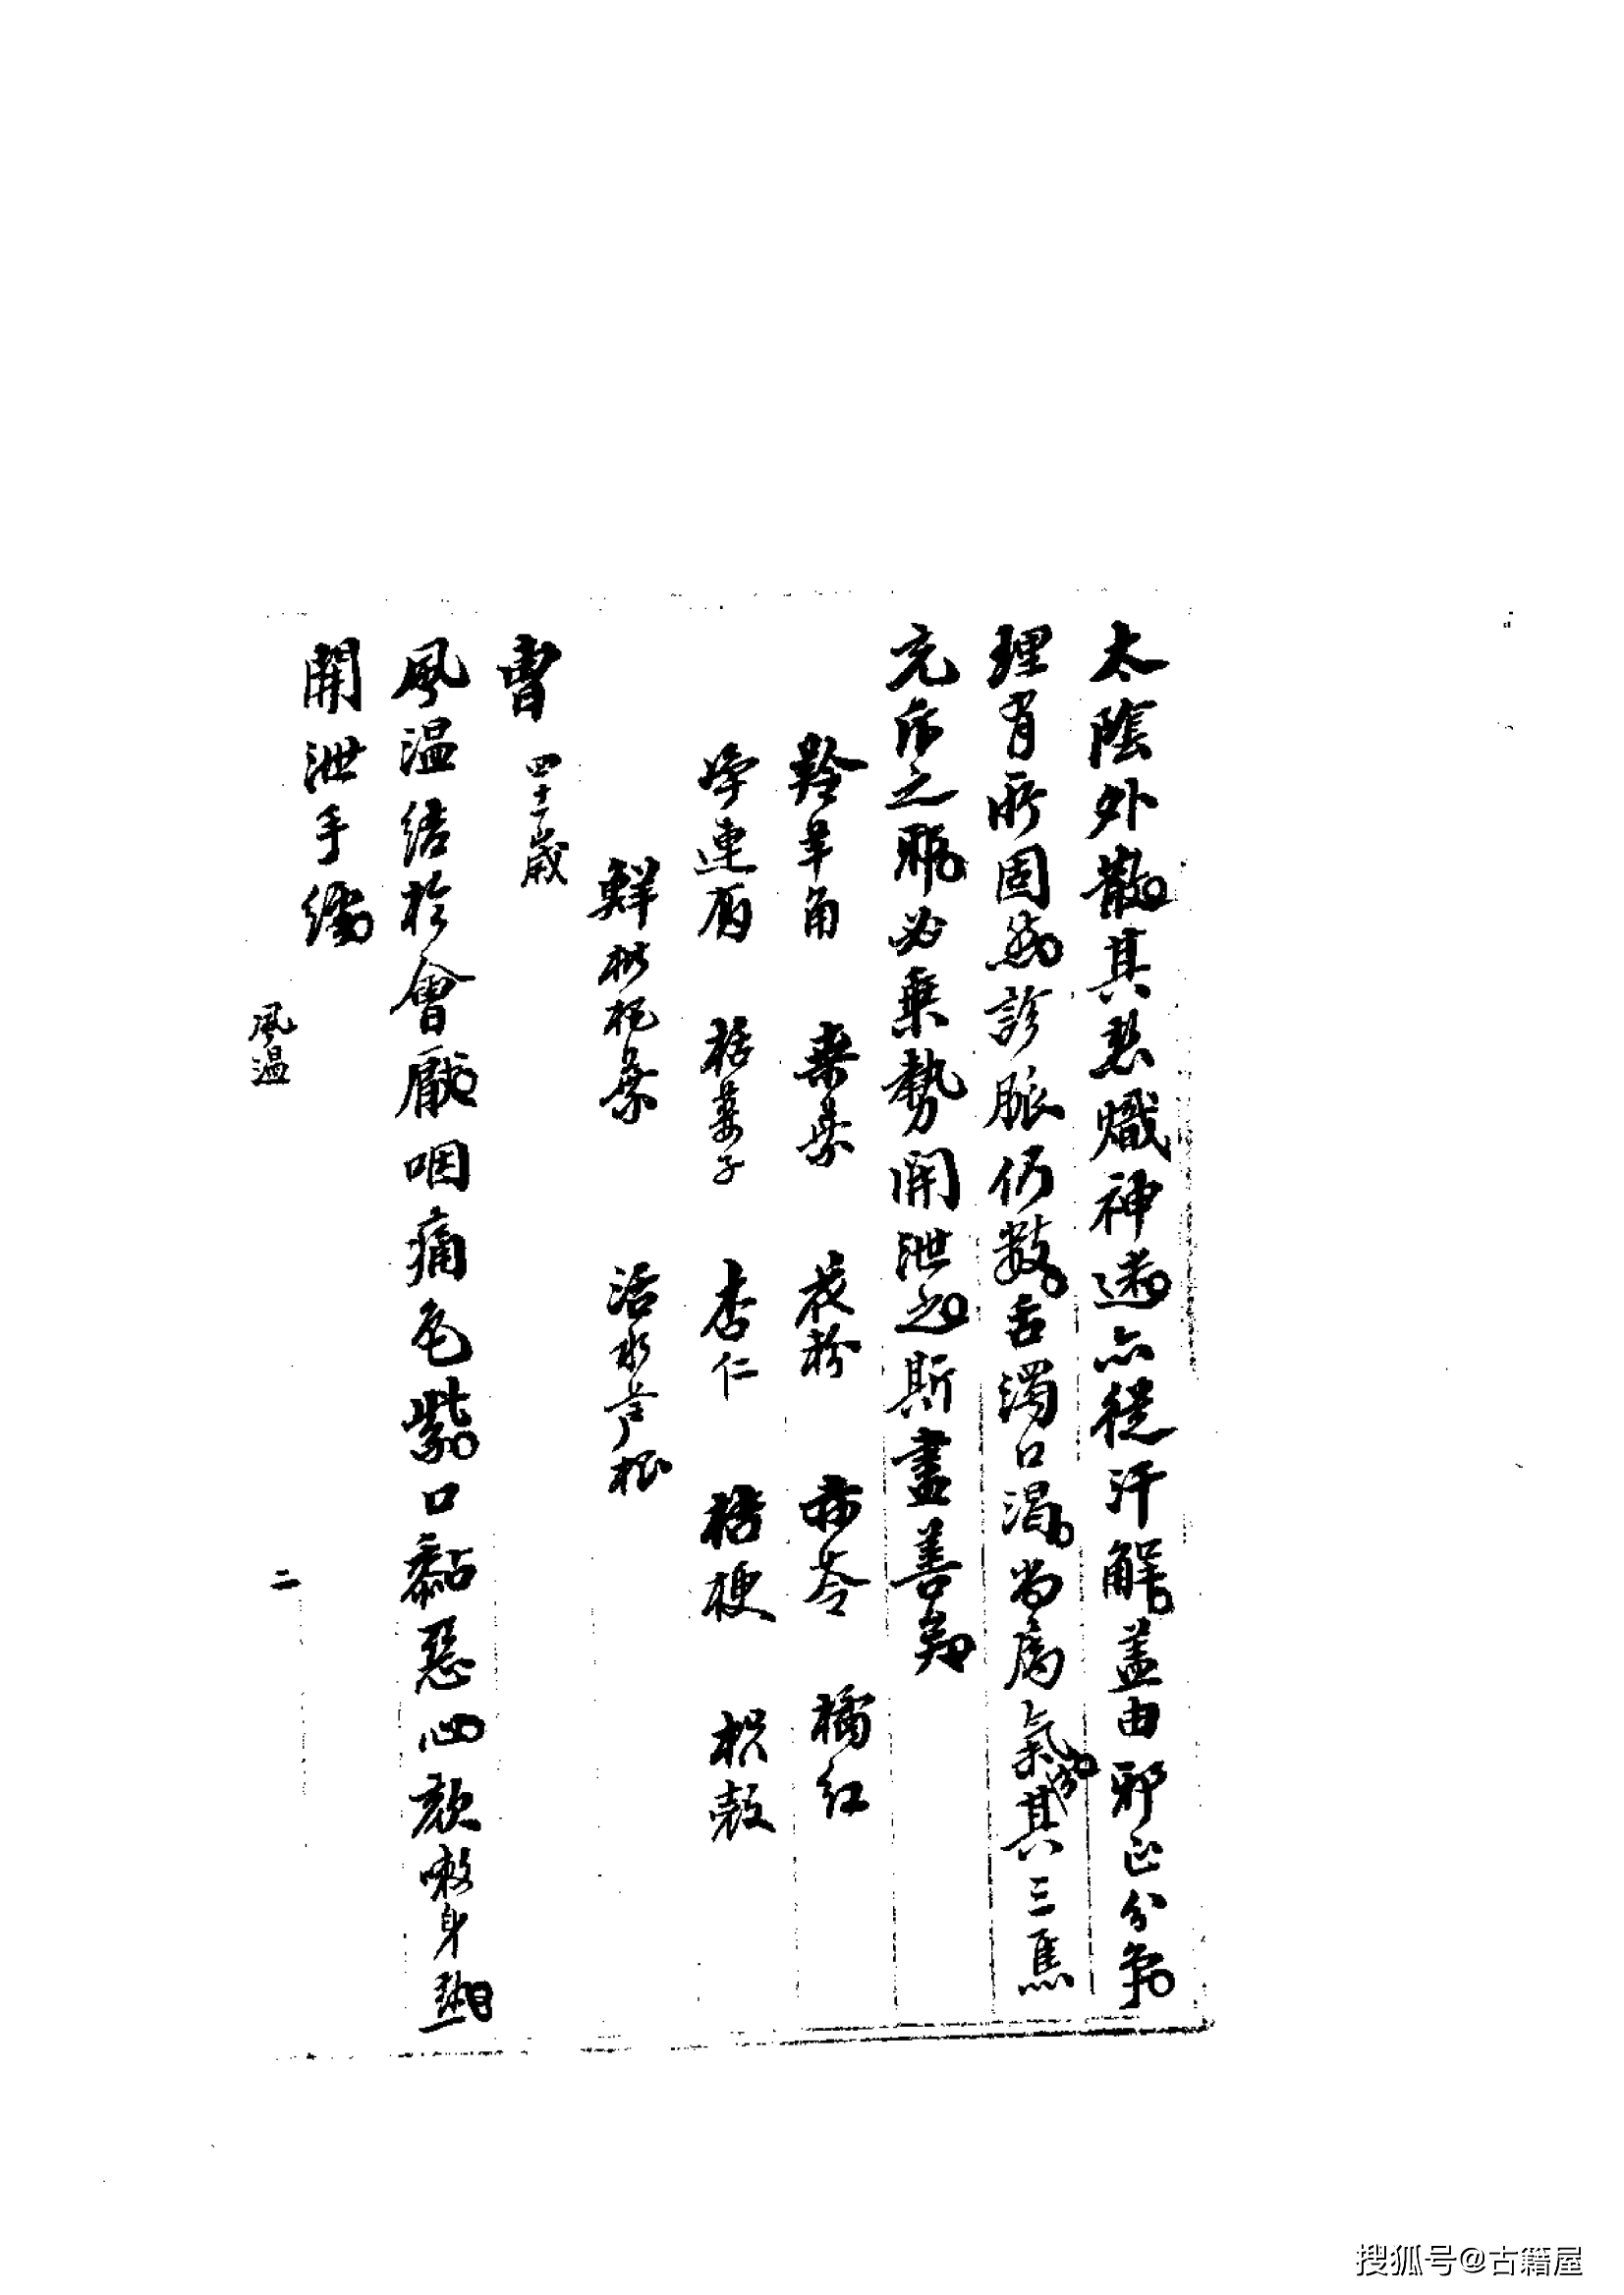 太陰外散其熱熾神迷亦從汗解蓋由邪正分爭
理有所固然診脈仍數舌濁口渴尚屬氣分其三焦
充斥之邪必乘勢開泄之斯盡善矣
羚羊角 桑葉 花粉 赤苓 橘紅
淨連翹 栝蔞子 杏仁 桔梗 枳殼
鮮枇杷葉 活水芦根
曹 四十一歲
風溫結於會厭咽痛色紫口黏惡心欬嗽身熱
開泄手
風溫
二
搜狐号@古籍屋